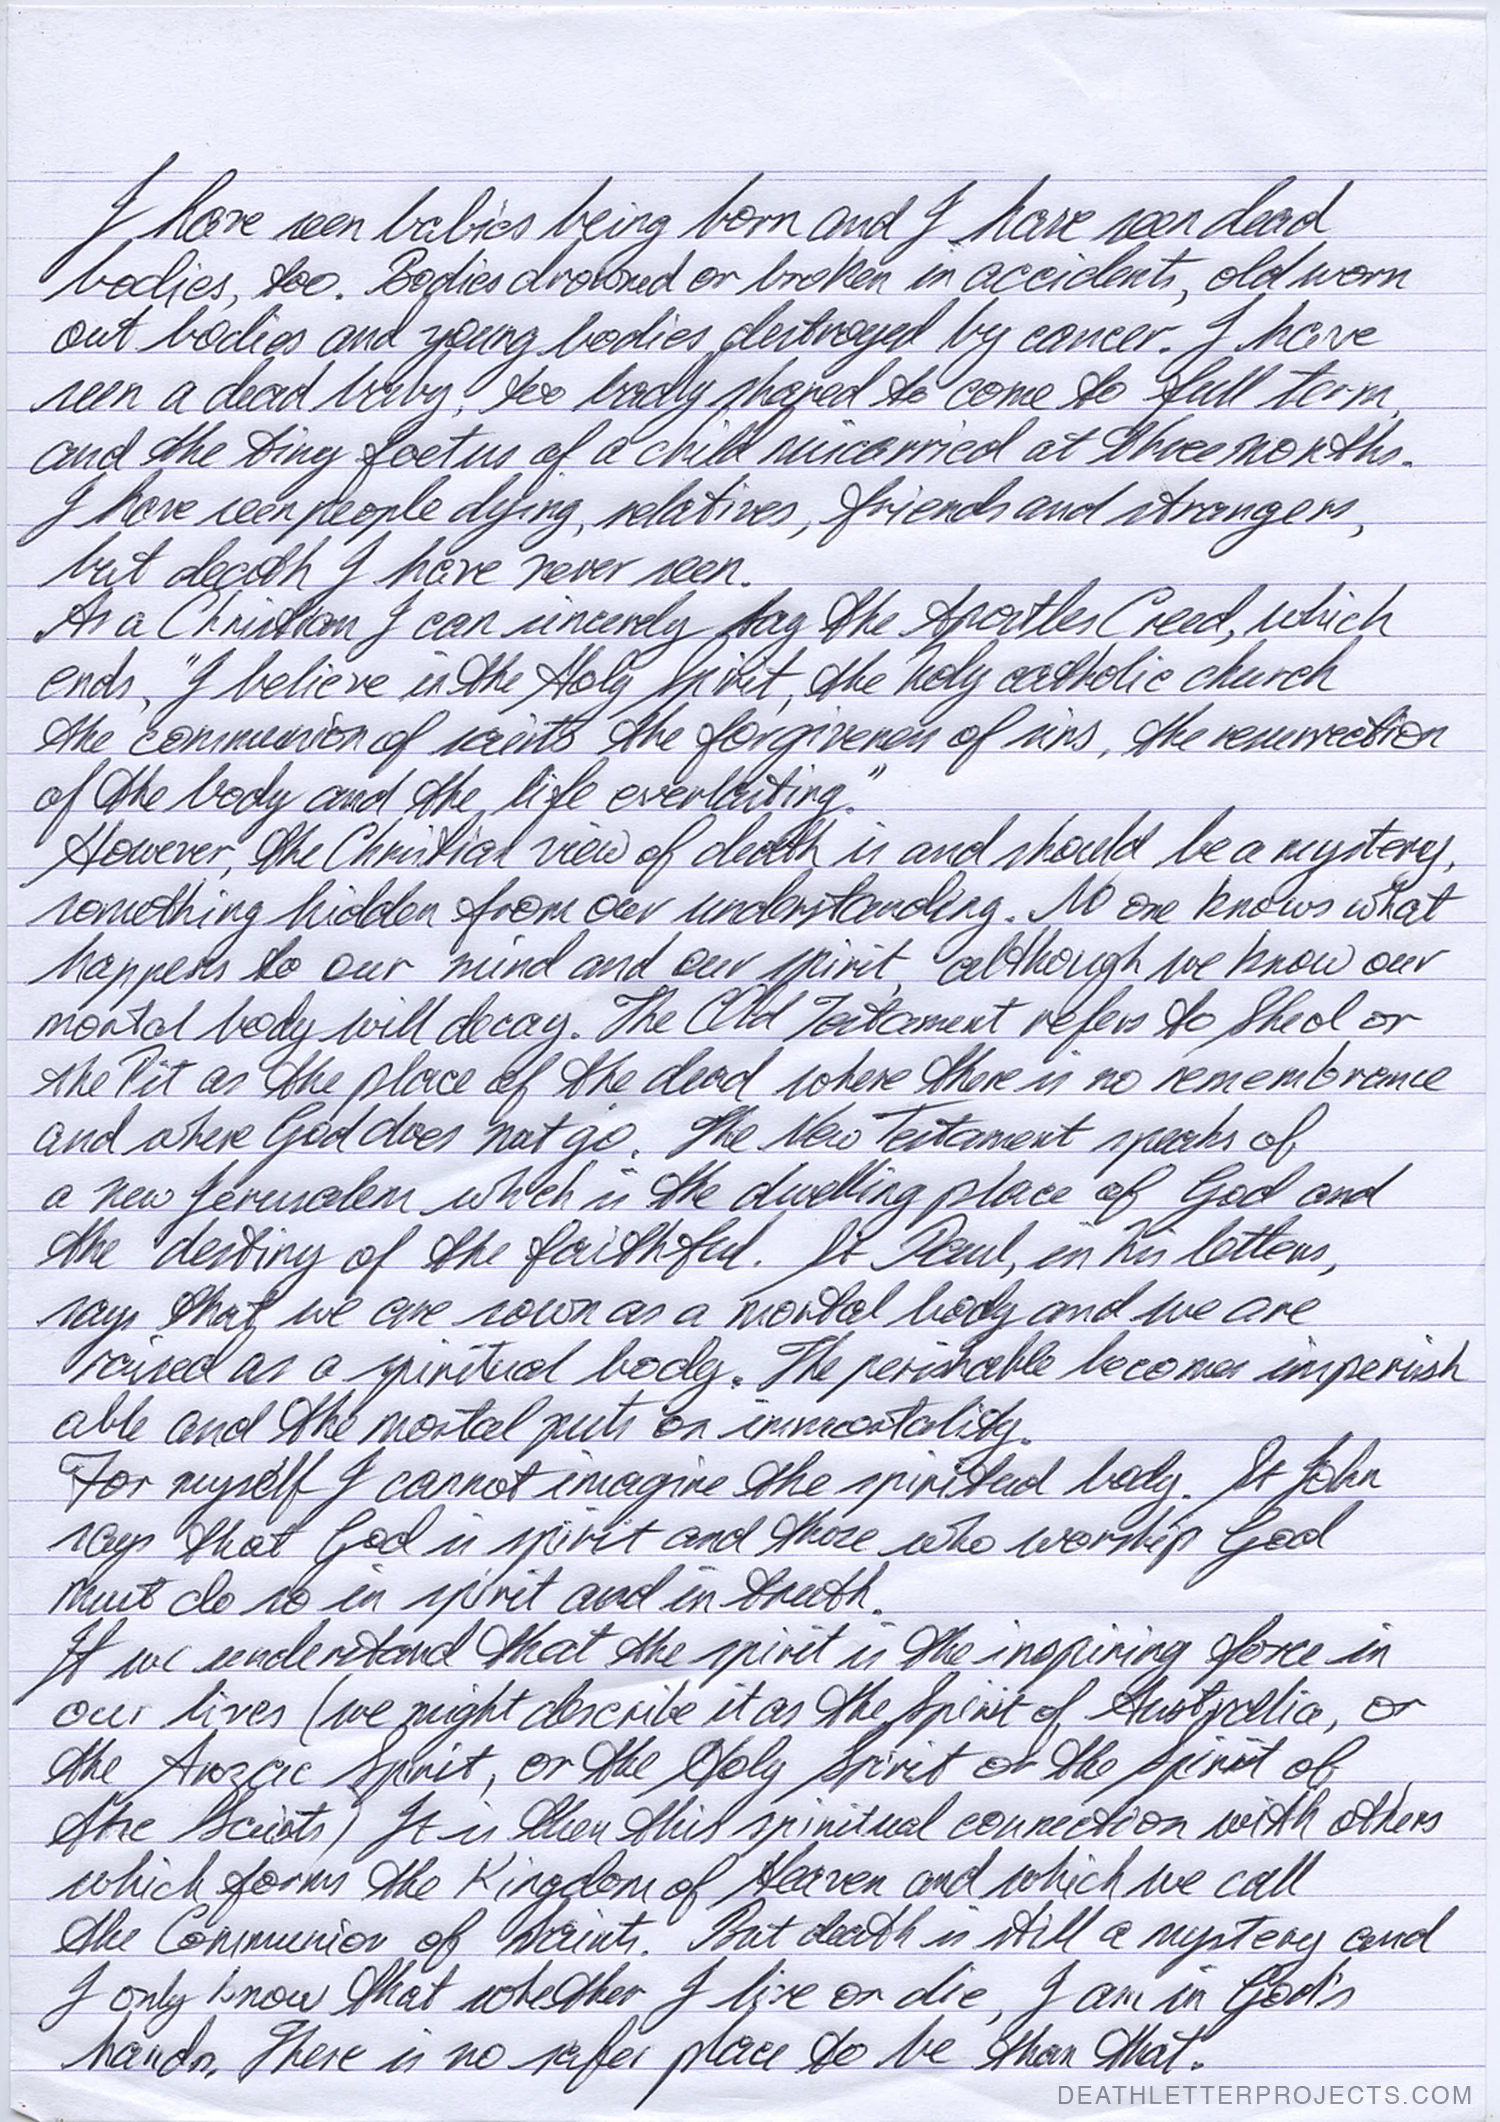 I have seen babies being born and I have seen dead
bodies, too. Bodies drowned or broken in accidents, old worn
out bodies and young bodies destroyed by cancer. I have
seen a dead baby, too badly shaped to come to full term,
and the tiny foetus of a child miscarried at three months.
I have seen people dying, relatives, friends and strangers,
but death I have never seen.
As a Christian I can sincerely say the Apostles Creed, which
ends, "I believe in the Holy Spirit, the holy catholic church
the communion of saints the forgiveness of sins, the resurrection
of the body and the life everlasting."
However, the Christian view of death is and should be a mystery,
something hidden from our understanding. No one knows what
happens to our mind and our spirit, although we know our
mortal body will decay. The Old Testament refers to Sheol or
the Pit as the place of the dead where there is no remembrance
and where God does not go. The New Testament speaks of
a new Jerusalem which is the dwelling place of God and
the destiny of the faithful. St Paul, in his letters,
says that we are sown as a mortal body and we are
raised as a spiritual body. The perishable becomes imperish
able and the mortal puts on immortality.
For myself I cannot imagine the spiritual body. St John
says that God is spirit and those who worship God
must do so in spirit and in truth.
If we understand that the spirit is the inspiring force in
our lives (we might describe it as the Spirit of Australia, or
the Anzac Spirit, or the Holy Spirit or the spirit of
the Scouts) It is then this spiritual connection with others
which forms the Kingdom of Heaven and which we call
the Communion of Saints. But death is still a mystery and
I only know that whether I live or die, I am in God's
hands. There is no safer place to be than that.
DEATHLETTERPROJECTS.COM